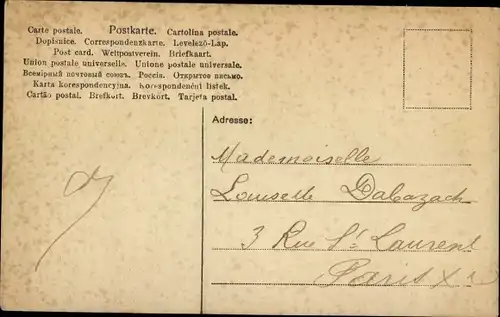 Carte postale. Postkarte. Cartolina postale.
Dopisnice. Correspondenzkarte. Levelező-Lap.
Post card. Weltpostverein. Briefkaart.
Union postale universelle. Unione postale universale.
Всемірный почтовый союзъ. Россія. Открытое письмо.
Karta korespondencyjna. Korespondenční lístek.
Cartão postal. Brefkort. Brevkort. Tarjeta postal.
Adresse:
Mademoiselle
Louiselle Dabazach
3 Rue St Laurent
Paris X